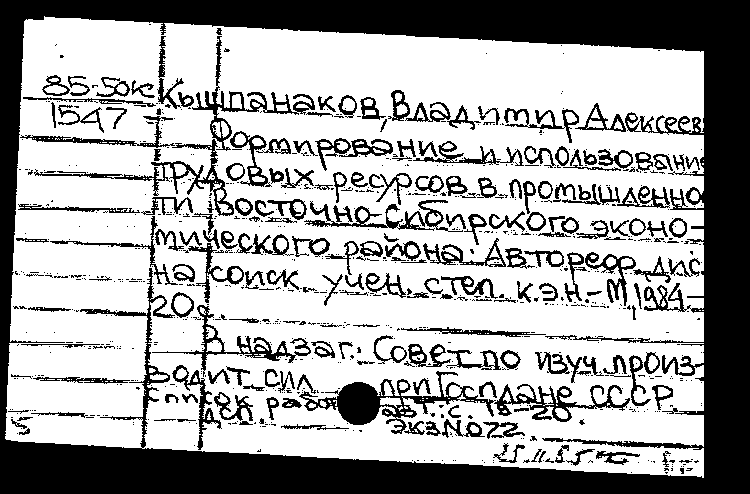 85-50к Кышпанаков, Владимир Алексеев
1547 –
Формирование и использование
трудовых ресурсов в промышленно
ти Восточно-Сибирского эконо-
мического района: Автореф. дис.
на соиск. учен. степ. к.э.н. – М., 1984. –
20 с.
В надзаг.: Совет по изуч. произ-
водит. сил при Госплане СССР.
Список работ авт.: с. 19-20.
ДСП. Экз. N022.
5
25.11.85.